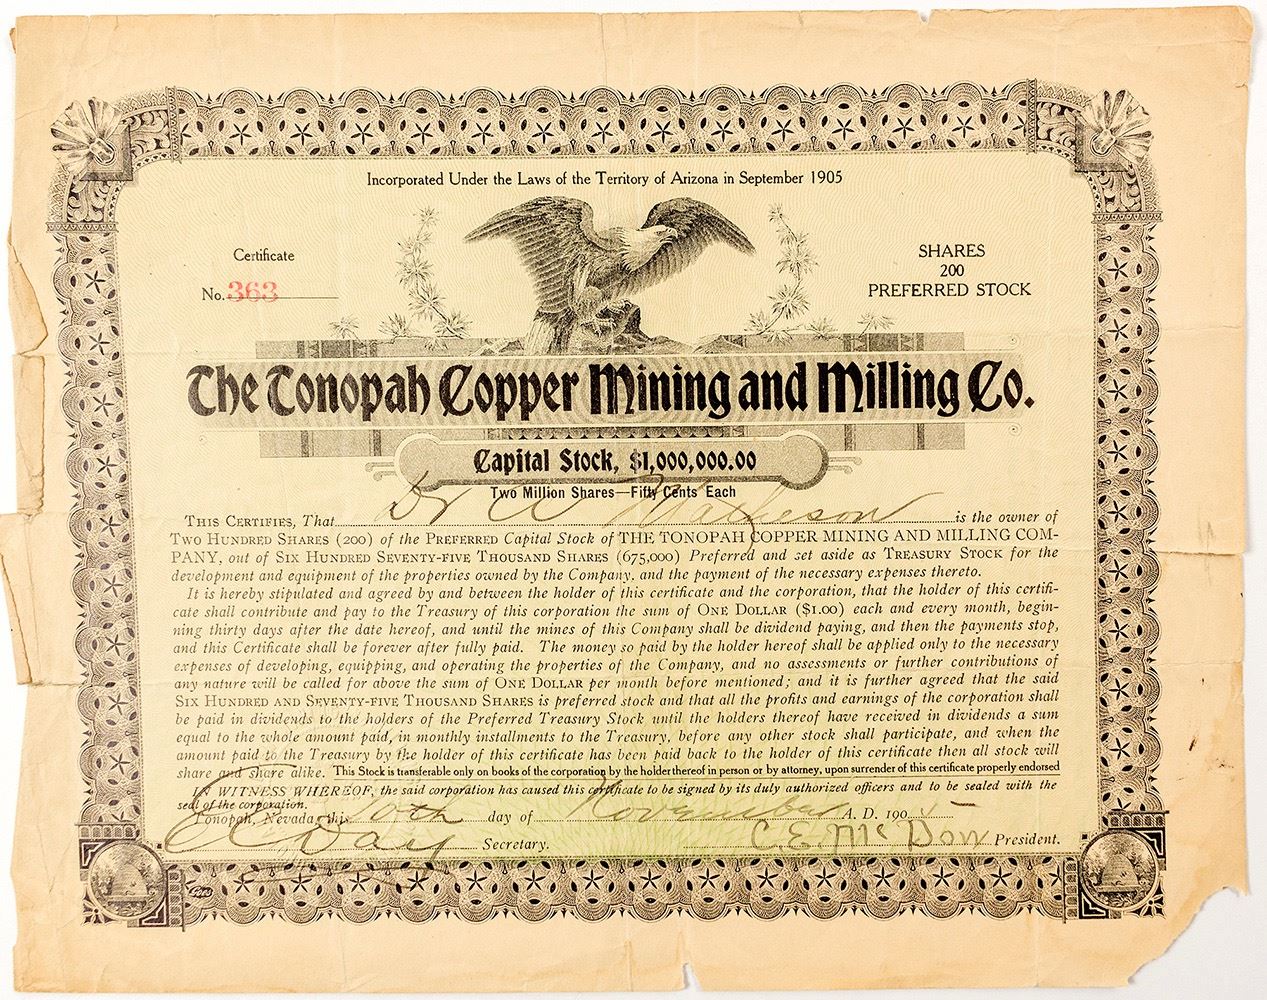 Incorporated Under the Laws of the Territory of Arizona in September 1905
Certificate
No. 363
SHARES
200
PREFERRED STOCK
The Tonopah Copper Mining and Milling Co.
Capital Stock, $1,000,000.00
Two Million Shares—Fifty Cents Each
THIS CERTIFIES, That Dr A Matheson is the owner of
TWO HUNDRED SHARES (200) of the PREFERRED Capital Stock of THE TONOPAH COPPER MINING AND MILLING COM-
PANY, out of SIX HUNDRED SEVENTY-FIVE THOUSAND SHARES (675,000) Preferred and set aside as TREASURY STOCK for the
development and equipment of the properties owned by the Company, and the payment of the necessary expenses thereto.
It is hereby stipulated and agreed by and between the holder of this certificate and the corporation, that the holder of this certifi-
cate shall contribute and pay to the Treasury of this corporation the sum of ONE DOLLAR ($1.00) each and every month, begin-
ning thirty days after the date hereof, and until the mines of this Company shall be dividend paying, and then the payments stop,
and this Certificate shall be forever after fully paid. The money so paid by the holder hereof shall be applied only to the necessary
expenses of developing, equipping, and operating the properties of the Company, and no assessments or further contributions of
any nature will be called for above the sum of ONE DOLLAR per month before mentioned; and it is further agreed that the said
SIX HUNDRED AND SEVENTY-FIVE THOUSAND SHARES is preferred stock and that all the profits and earnings of the corporation shall
be paid in dividends to the holders of the Preferred Treasury Stock until the holders thereof have received in dividends a sum
equal to the whole amount paid, in monthly installments to the Treasury, before any other stock shall participate, and when the
amount paid to the Treasury by the holder of this certificate has been paid back to the holder of this certificate then all stock will
share and share alike. This Stock is transferable only on books of the corporation by the holder thereof in person or by attorney, upon surrender of this certificate properly endorsed
IN WITNESS WHEREOF, the said corporation has caused this certificate to be signed by its duly authorized officers and to be sealed with the
seal of the corporation.
Tonopah, Nevada, this 10th day of November A. D. 1905
E C Day Secretary. C. E. McDow President.